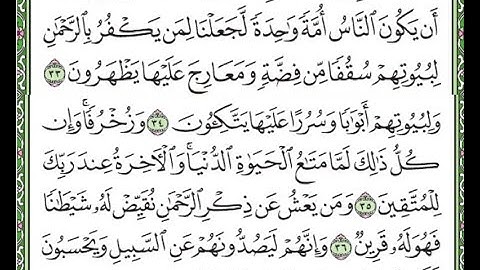 أَن يَكُونَ ٱلنَّاسُ أُمَّةً وَٰحِدَةً لَّجَعَلْنَا لِمَن يَكْفُرُ بِٱلرَّحْمَٰنِ
لِبُيُوتِهِمْ سُقُفًا مِّن فِضَّةٍ وَمَعَارِجَ عَلَيْهَا يَظْهَرُونَ ٣٣
وَلِبُيُوتِهِمْ أَبْوَٰبًا وَسُرُرًا عَلَيْهَا يَتَّكِـُٔونَ ٣٤ وَزُخْرُفًا ۚ وَإِن
كُلُّ ذَٰلِكَ لَمَّا مَتَٰعُ ٱلْحَيَوٰةِ ٱلدُّنْيَا ۚ وَٱلْـَٔاخِرَةُ عِندَ رَبِّكَ
لِلْمُتَّقِينَ ٣٥ وَمَن يَعْشُ عَن ذِكْرِ ٱلرَّحْمَٰنِ نُقَيِّضْ لَهُۥ شَيْطَٰنًا
فَهُوَ لَهُۥ قَرِينٌ ٣٦ وَإِنَّهُمْ لَيَصُدُّونَهُمْ عَنِ ٱلسَّبِيلِ وَيَحْسَبُونَ